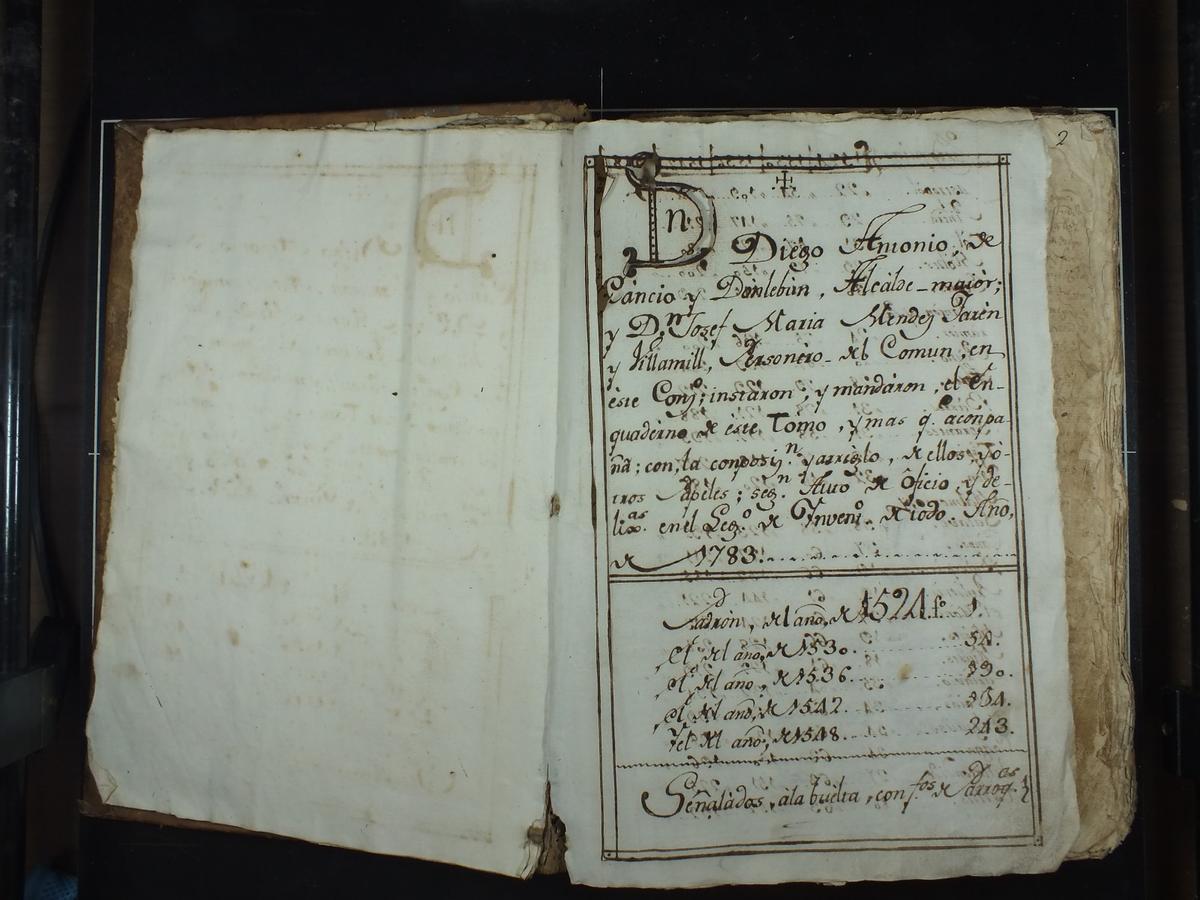 2
✝
Dn. Diego Antonio, de
Cancio y Donlebun, Alcalde-maior;
y D.n Josef Maria Mendez Jarén
y Villamill, Personero-del Comun, en
éste Conj; instaron; y mandáron, el En-
quaderno de éste Tomo, y mas q. acompa-
ña; con, la composij.n y arriglo, de ellos, y ó-
tros Papéles; seg.n Auto de Oficio, y de-
lix.as en el Leg.o de Ynven.o de todo. Año,
de 1783.
Padrón, del año, de 1524. f.o 1.
el del año, de 1530. 54.
el del año, de 1536. 190.
el del año, de 1542. 234.
Y el del año, de 1548. 243.
Señalados, a la buelta, con f.os de Parroq.as